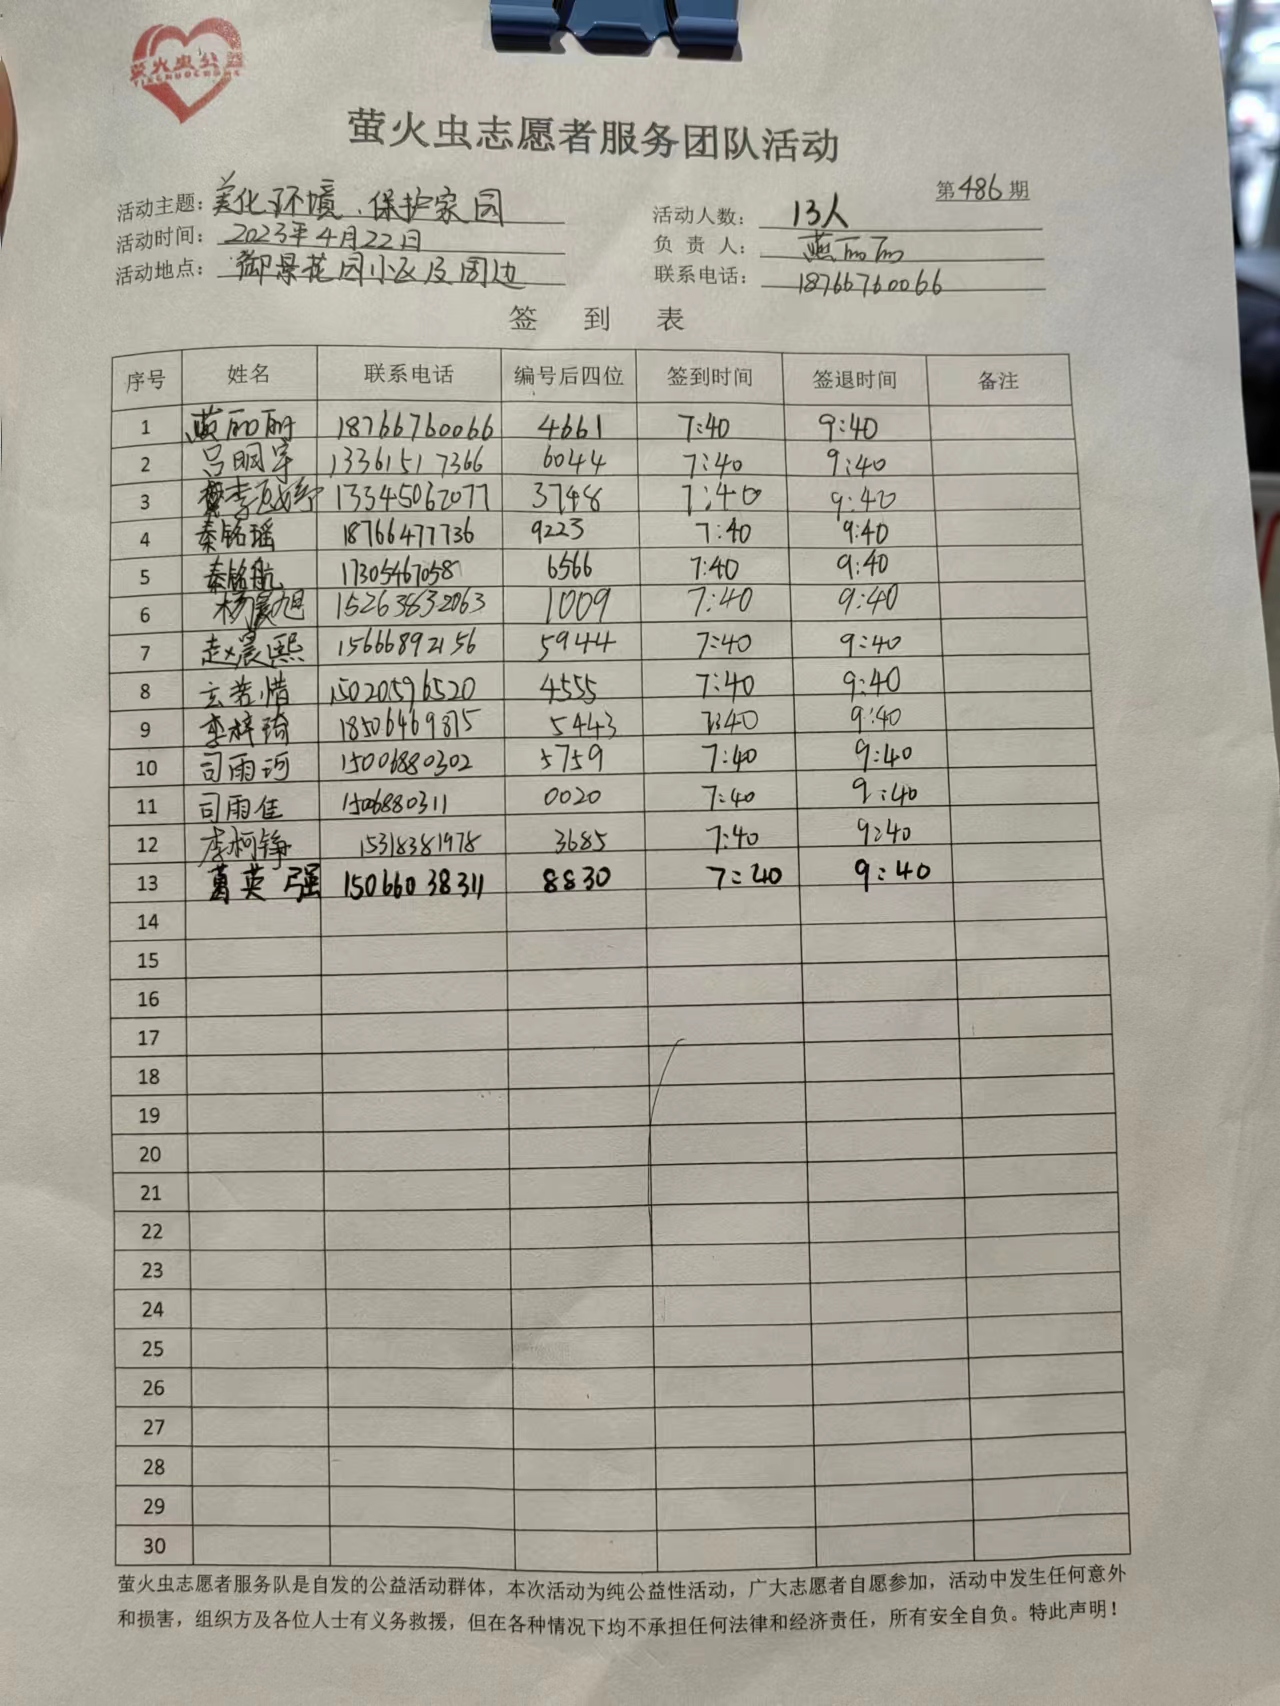 萤火虫公益
YINGHUOCHONG
萤火虫志愿者服务团队活动
第486期
活动主题：美化环境、保护家园 活动人数：13人
活动时间：2023年4月22日 负责人：燕丽丽
活动地点：御景花园小区及周边 联系电话：18766760066
签到表
序号 姓名 联系电话 编号后四位 签到时间 签退时间 备注
1 燕丽丽 18766760066 4661 7:40 9:40
2 吕明宇 13361517366 6044 7:40 9:40
3 李 13345067077 3748 7:40 9:40
4 秦铭瑶 18766477736 9223 7:40 9:40
5 秦铭航 17305467058 6566 7:40 9:40
6 杨晨旭 15263832063 1009 7:40 9:40
7 赵晨熙 15666892156 5944 7:40 9:40
8 玄若惜 15020596520 4555 7:40 9:40
9 李梓琦 18506469875 5443 7:40 9:40
10 司雨河 15006880302 5759 7:40 9:40
11 司雨佳 1506880311 0020 7:40 9:40
12 李柯铮 15318381978 3685 7:40 9:40
13 葛英强 15066038311 8830 7:40 9:40
14
15
16
17
18
19
20
21
22
23
24
25
26
27
28
29
30
萤火虫志愿者服务队是自发的公益活动群体，本次活动为纯公益性活动，广大志愿者自愿参加，活动中发生任何意外
和损害，组织方及各位人士有义务救援，但在各种情况下均不承担任何法律和经济责任，所有安全自负。特此声明！